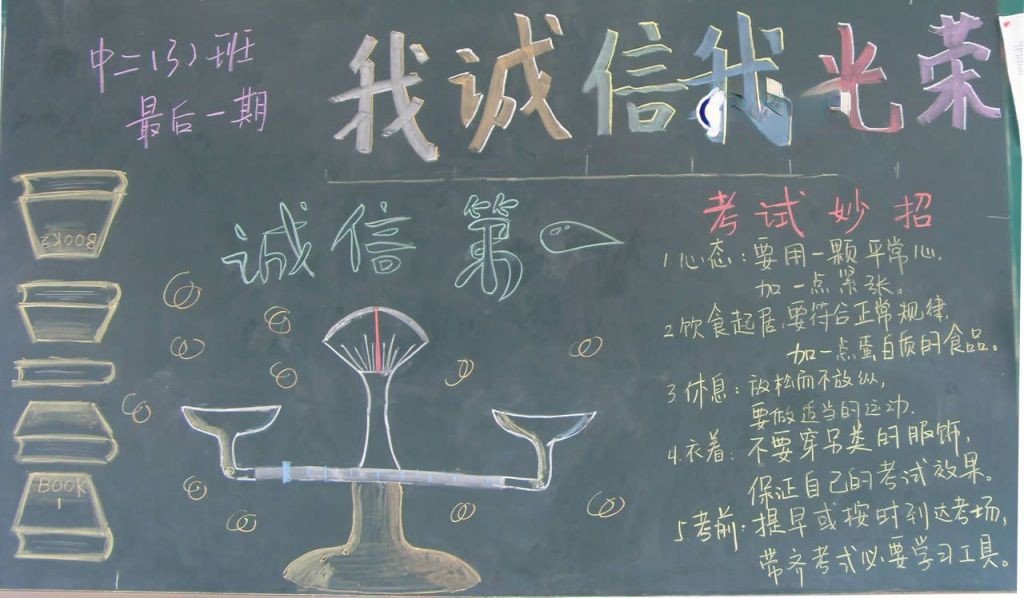 中二(3)班
最后一期
我诚信我光荣
诚信第一
考试妙招
1 心态:要用一颗平常心,
加一点紧张。
2 饮食起居:要符合正常规律,
加一点蛋白质的食品。
3 休息:放松而不放纵,
要做适当的运动.
4.衣着:不要穿另类的服饰,
保证自己的考试效果。
5.考前:提早或按时到达考场,
带齐考式必要学习工具。
BOOK2
BOOK
1